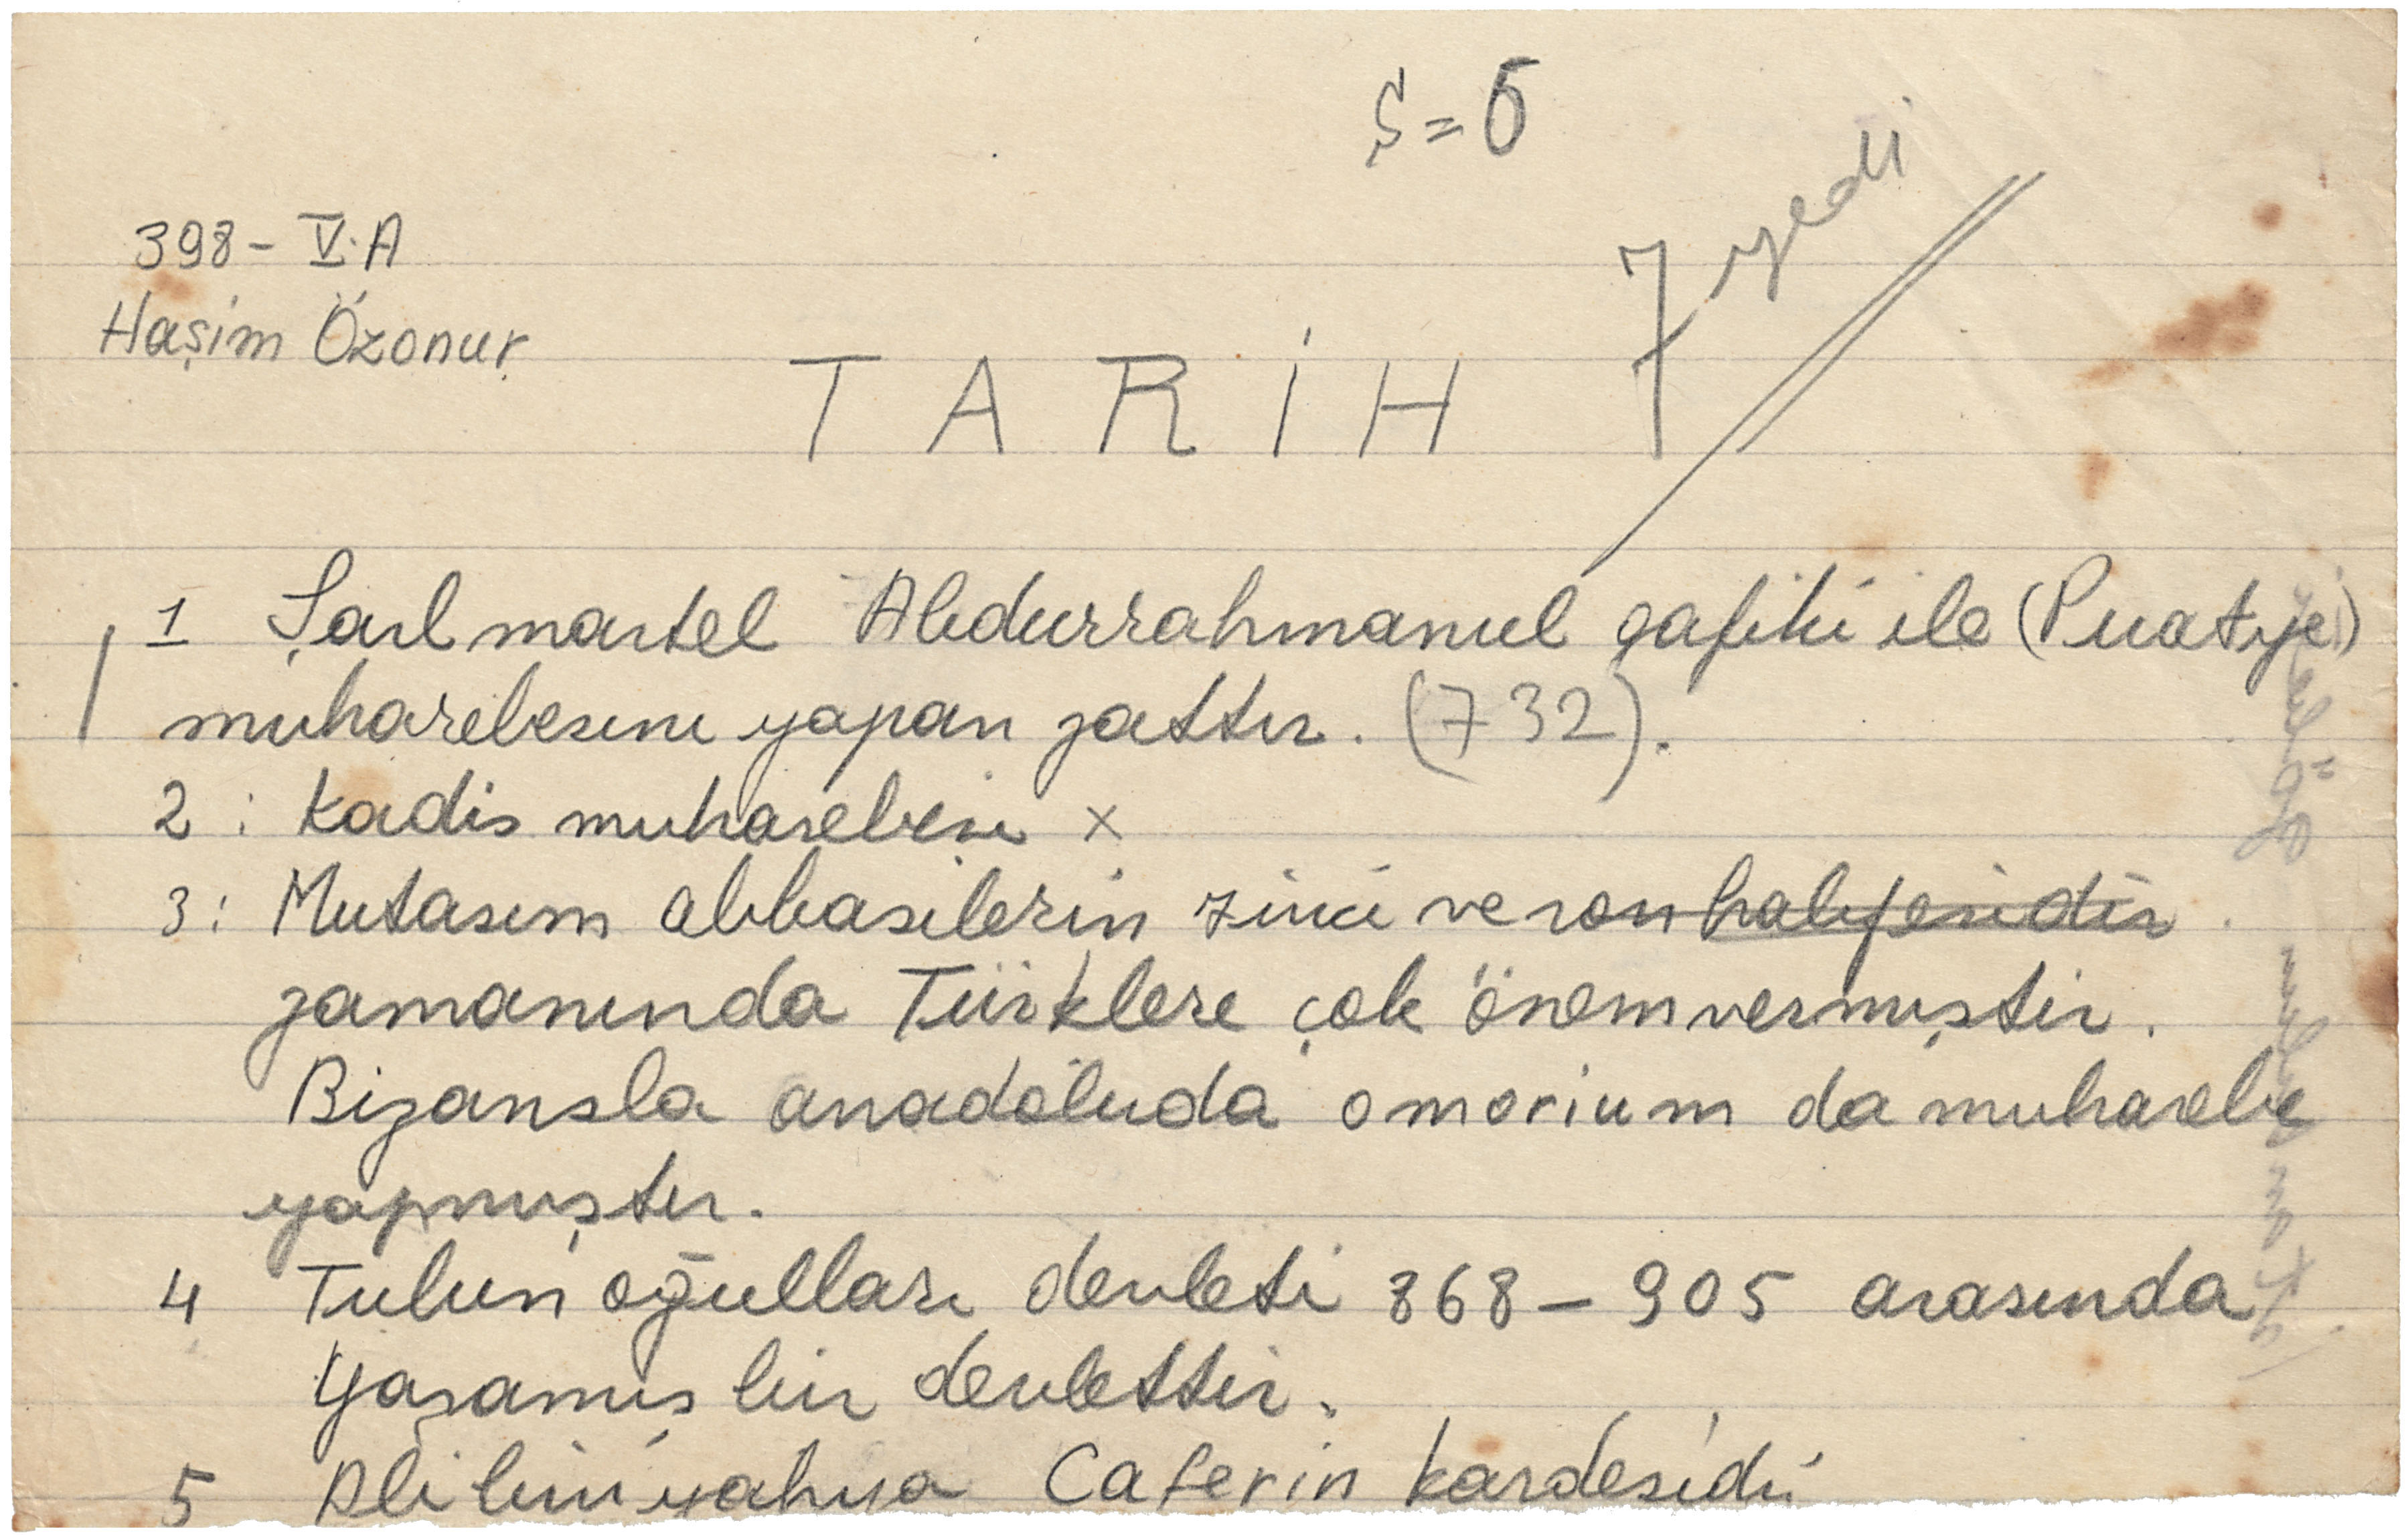 Ş=5
7 yedi
398- V.A
Haşim Özonur
TARİH
1 Şarl martel Abdurrahmanul gafiki ile (Puatye)
muharebesını yapan zattır. (732).
2: Kadis muharebesi x
3: Mutasım abbasilerin 7inci ve son halifesidir.
zamanında Türklere çok önem vermıştir.
Bizansla anadoluda omorium da muharebe
yapmıştır.
4 Tulun oğulları devleti 868-905 arasında
Yaşamış bir devlettir.
5 Ali bini yahya Caferin kardeşidi